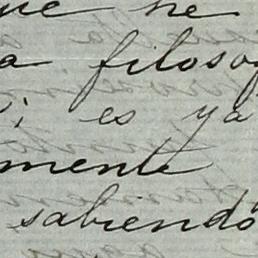 que he
a filosof
; es ya
mente
sabiendo